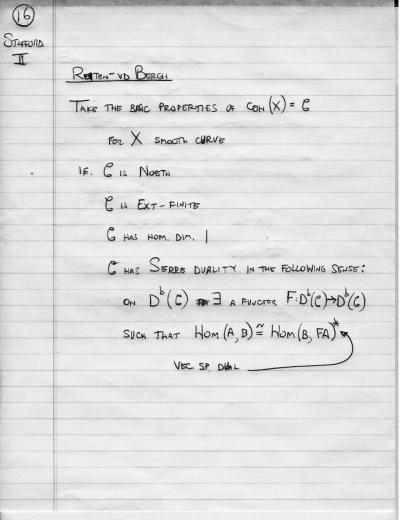 16
STAFFORD
II
REITEN - VD BERGH
TAKE THE BASIC PROPERTIES OF COH(X) = C
FOR X SMOOTH CURVE
IE. C IS NOETH
C IS EXT-FINITE
C HAS HOM. DIM. 1
C HAS SERRE DUALITY IN THE FOLLOWING SENSE:
ON D^b(C) ∃ A FUNCTOR F: D^b(C)→D^b(C)
SUCH THAT Hom(A, B) ≅ Hom(B, FA)*
VEC. SP. DUAL